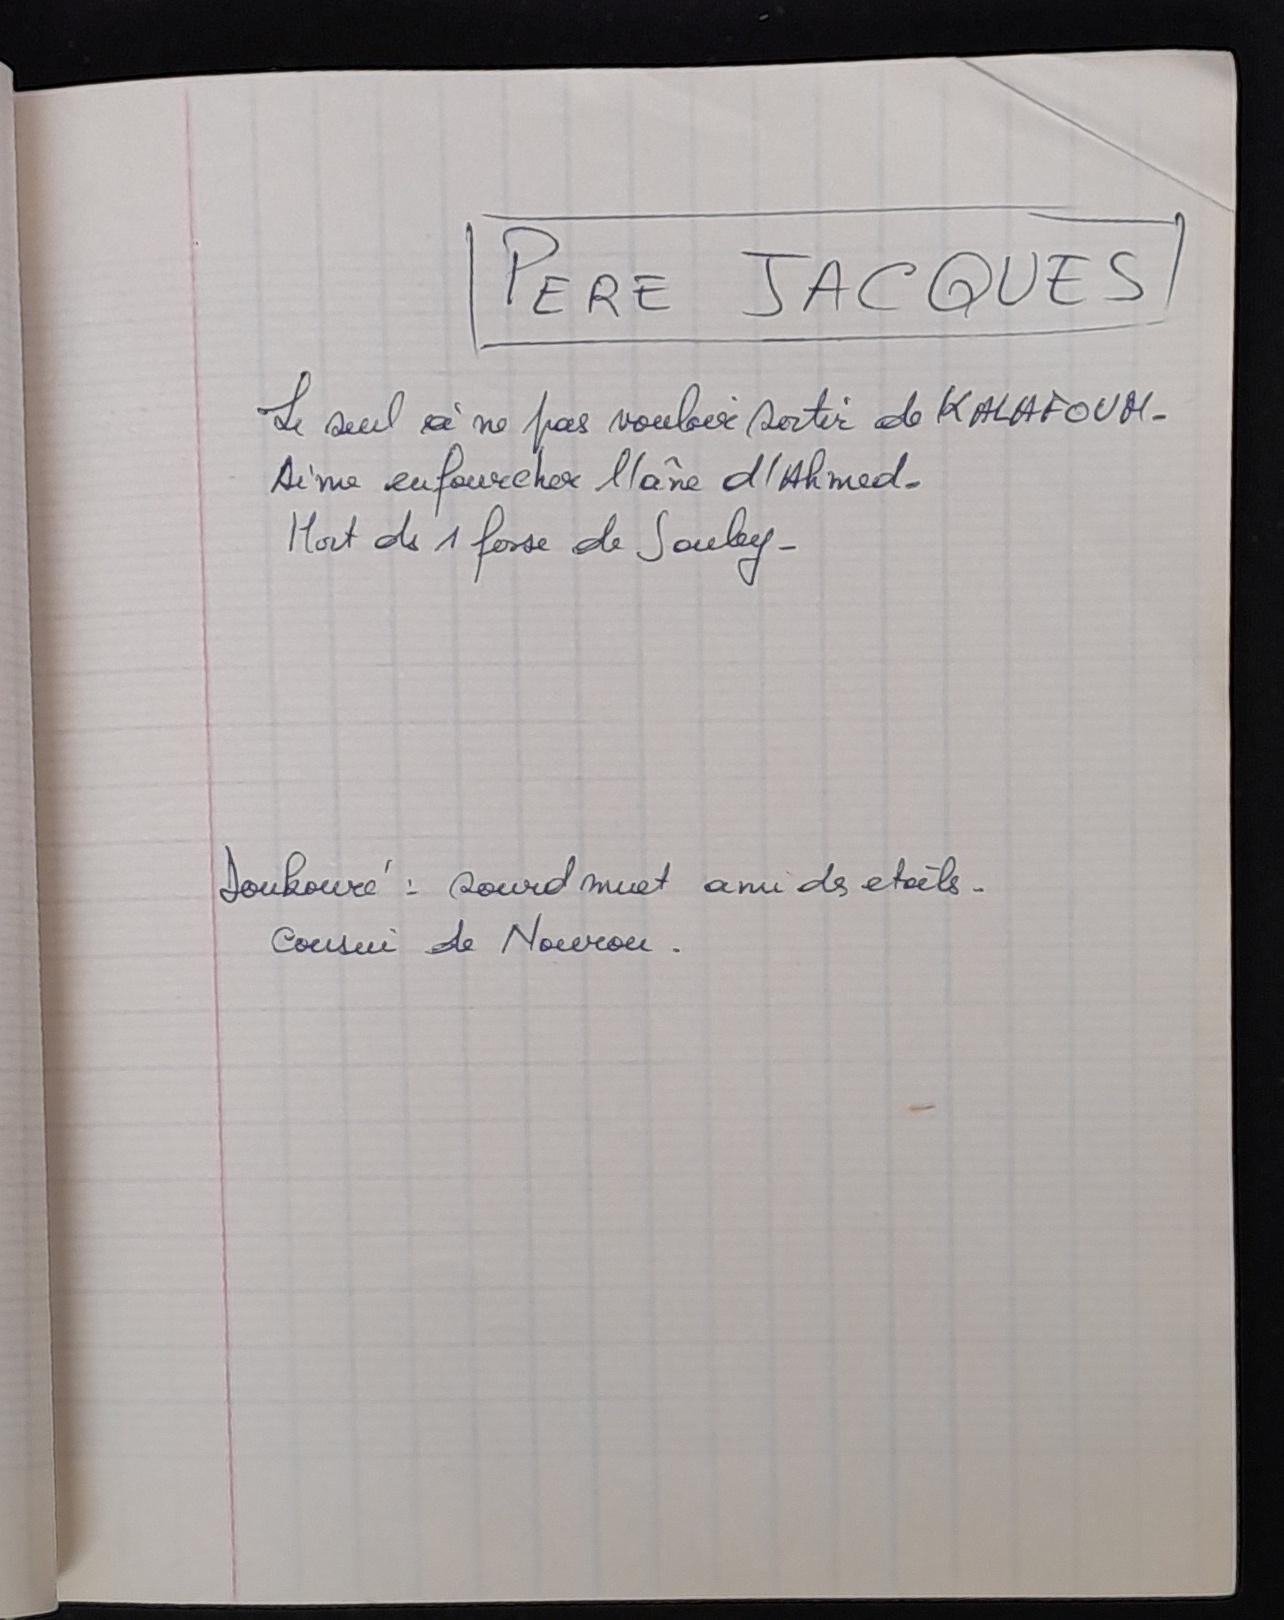 PERE JACQUES
Le seul à ne pas vouloir sortir de KALAFOUM-
Aime enfourcher l'âne d'Ahmed-
Mort ds 1 fosse de Souley-
Doukouré : sourd muet ami ds
Cousin de Nourou.